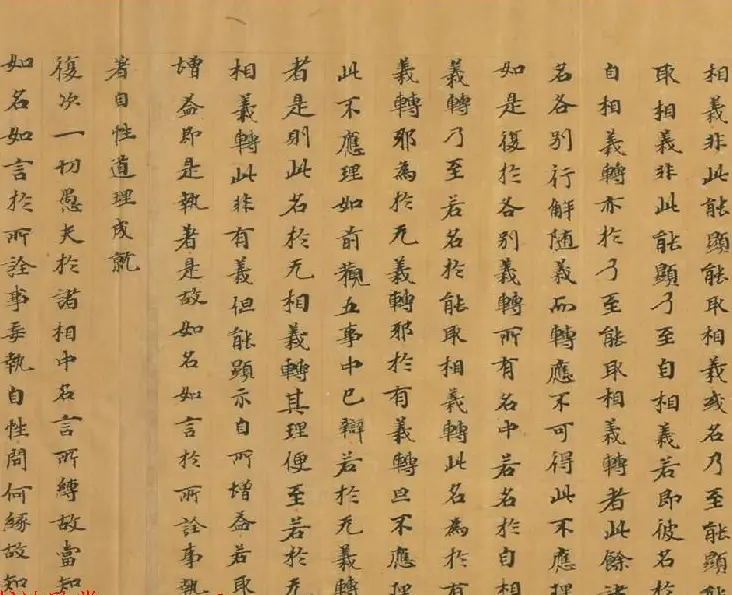 相義非此能顯能取相義或名乃至能顯能
取相義非此能顯乃至自相義若即彼名於
自相義轉亦於乃至能取相義轉者此餘諸
名各別行解隨義而轉應不可得此不應理
如是復於各別義轉所有名中若名於自相
義轉乃至若名於能取相義轉此名為於有
義轉耶為於无義轉耶於有義轉旦不應理
此不應理如前觀五事中已辯若於无義轉
者是則此名於无相義轉其理便至若於无
相義轉此非有義但能顯示自所增益若取
增益即是執著是故如名如言於所詮事執
著自性道理成就
復次一切愚夫於諸相中名言所縛故當知
如名如言於所詮事妄執自性問何緣故知